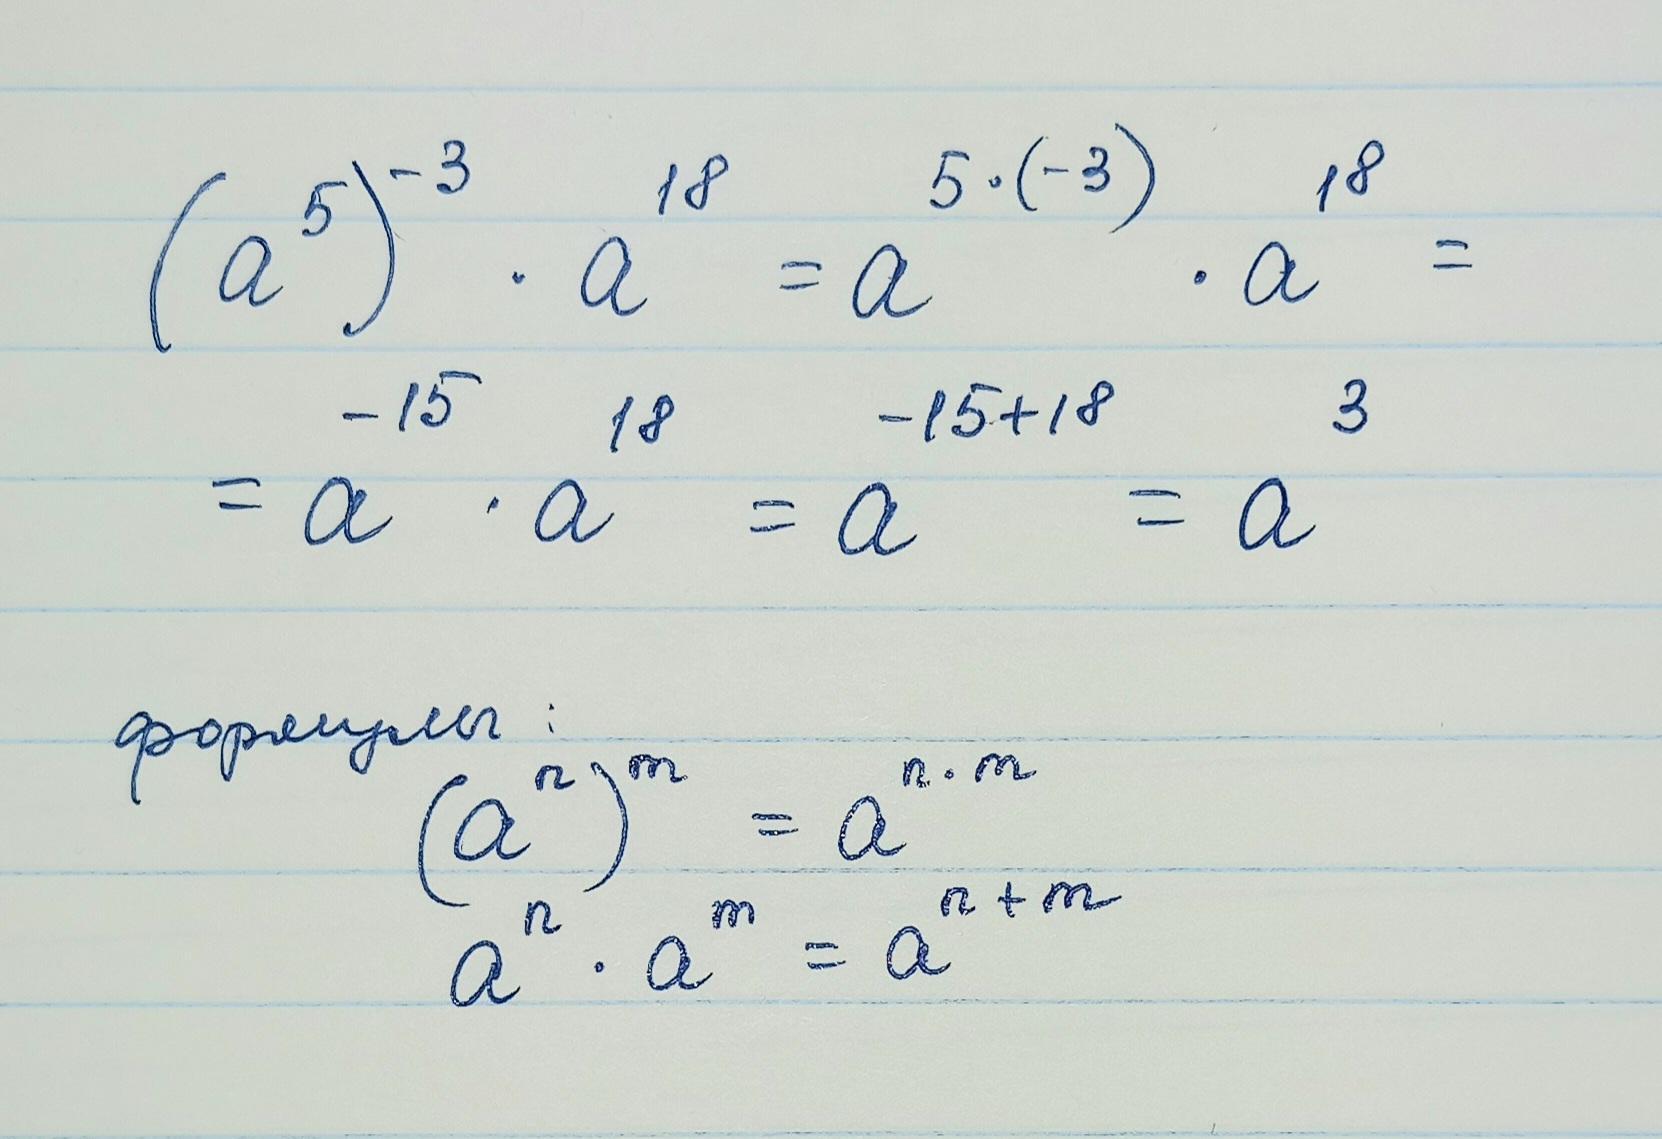 (a⁵)⁻³ · a¹⁸ = a⁵·⁽⁻³⁾ · a¹⁸ =
= a⁻¹⁵ · a¹⁸ = a⁻¹⁵⁺¹⁸ = a³
формулы:
(aⁿ)ᵐ = aⁿ·ᵐ
aⁿ · aᵐ = aⁿ⁺ᵐ